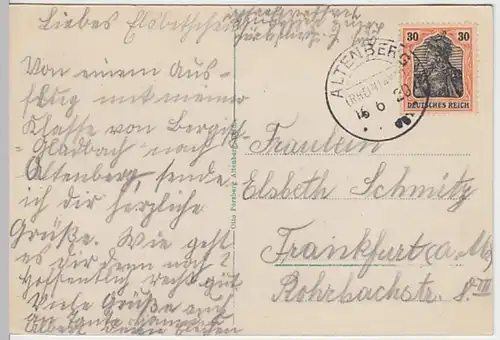 Liebes Elsbetschen
Von einem Aus-
flug mit meiner
Klasse von Bergisch
Gladbach nach
Altenberg, sende
ich dir herzliche
Grüße. Wie geht
es dir denn noch?
Hoffentlich recht gut
Viele Grüße auch
an Tante
Albert
ALTENBERG
16 6 20
30 30
DEUTSCHES REICH
Fräulein
Elsbeth Schmitz
Frankfurt (a. M.)
Rohrbachstr. 8 III
Otto Persberg Altenberg